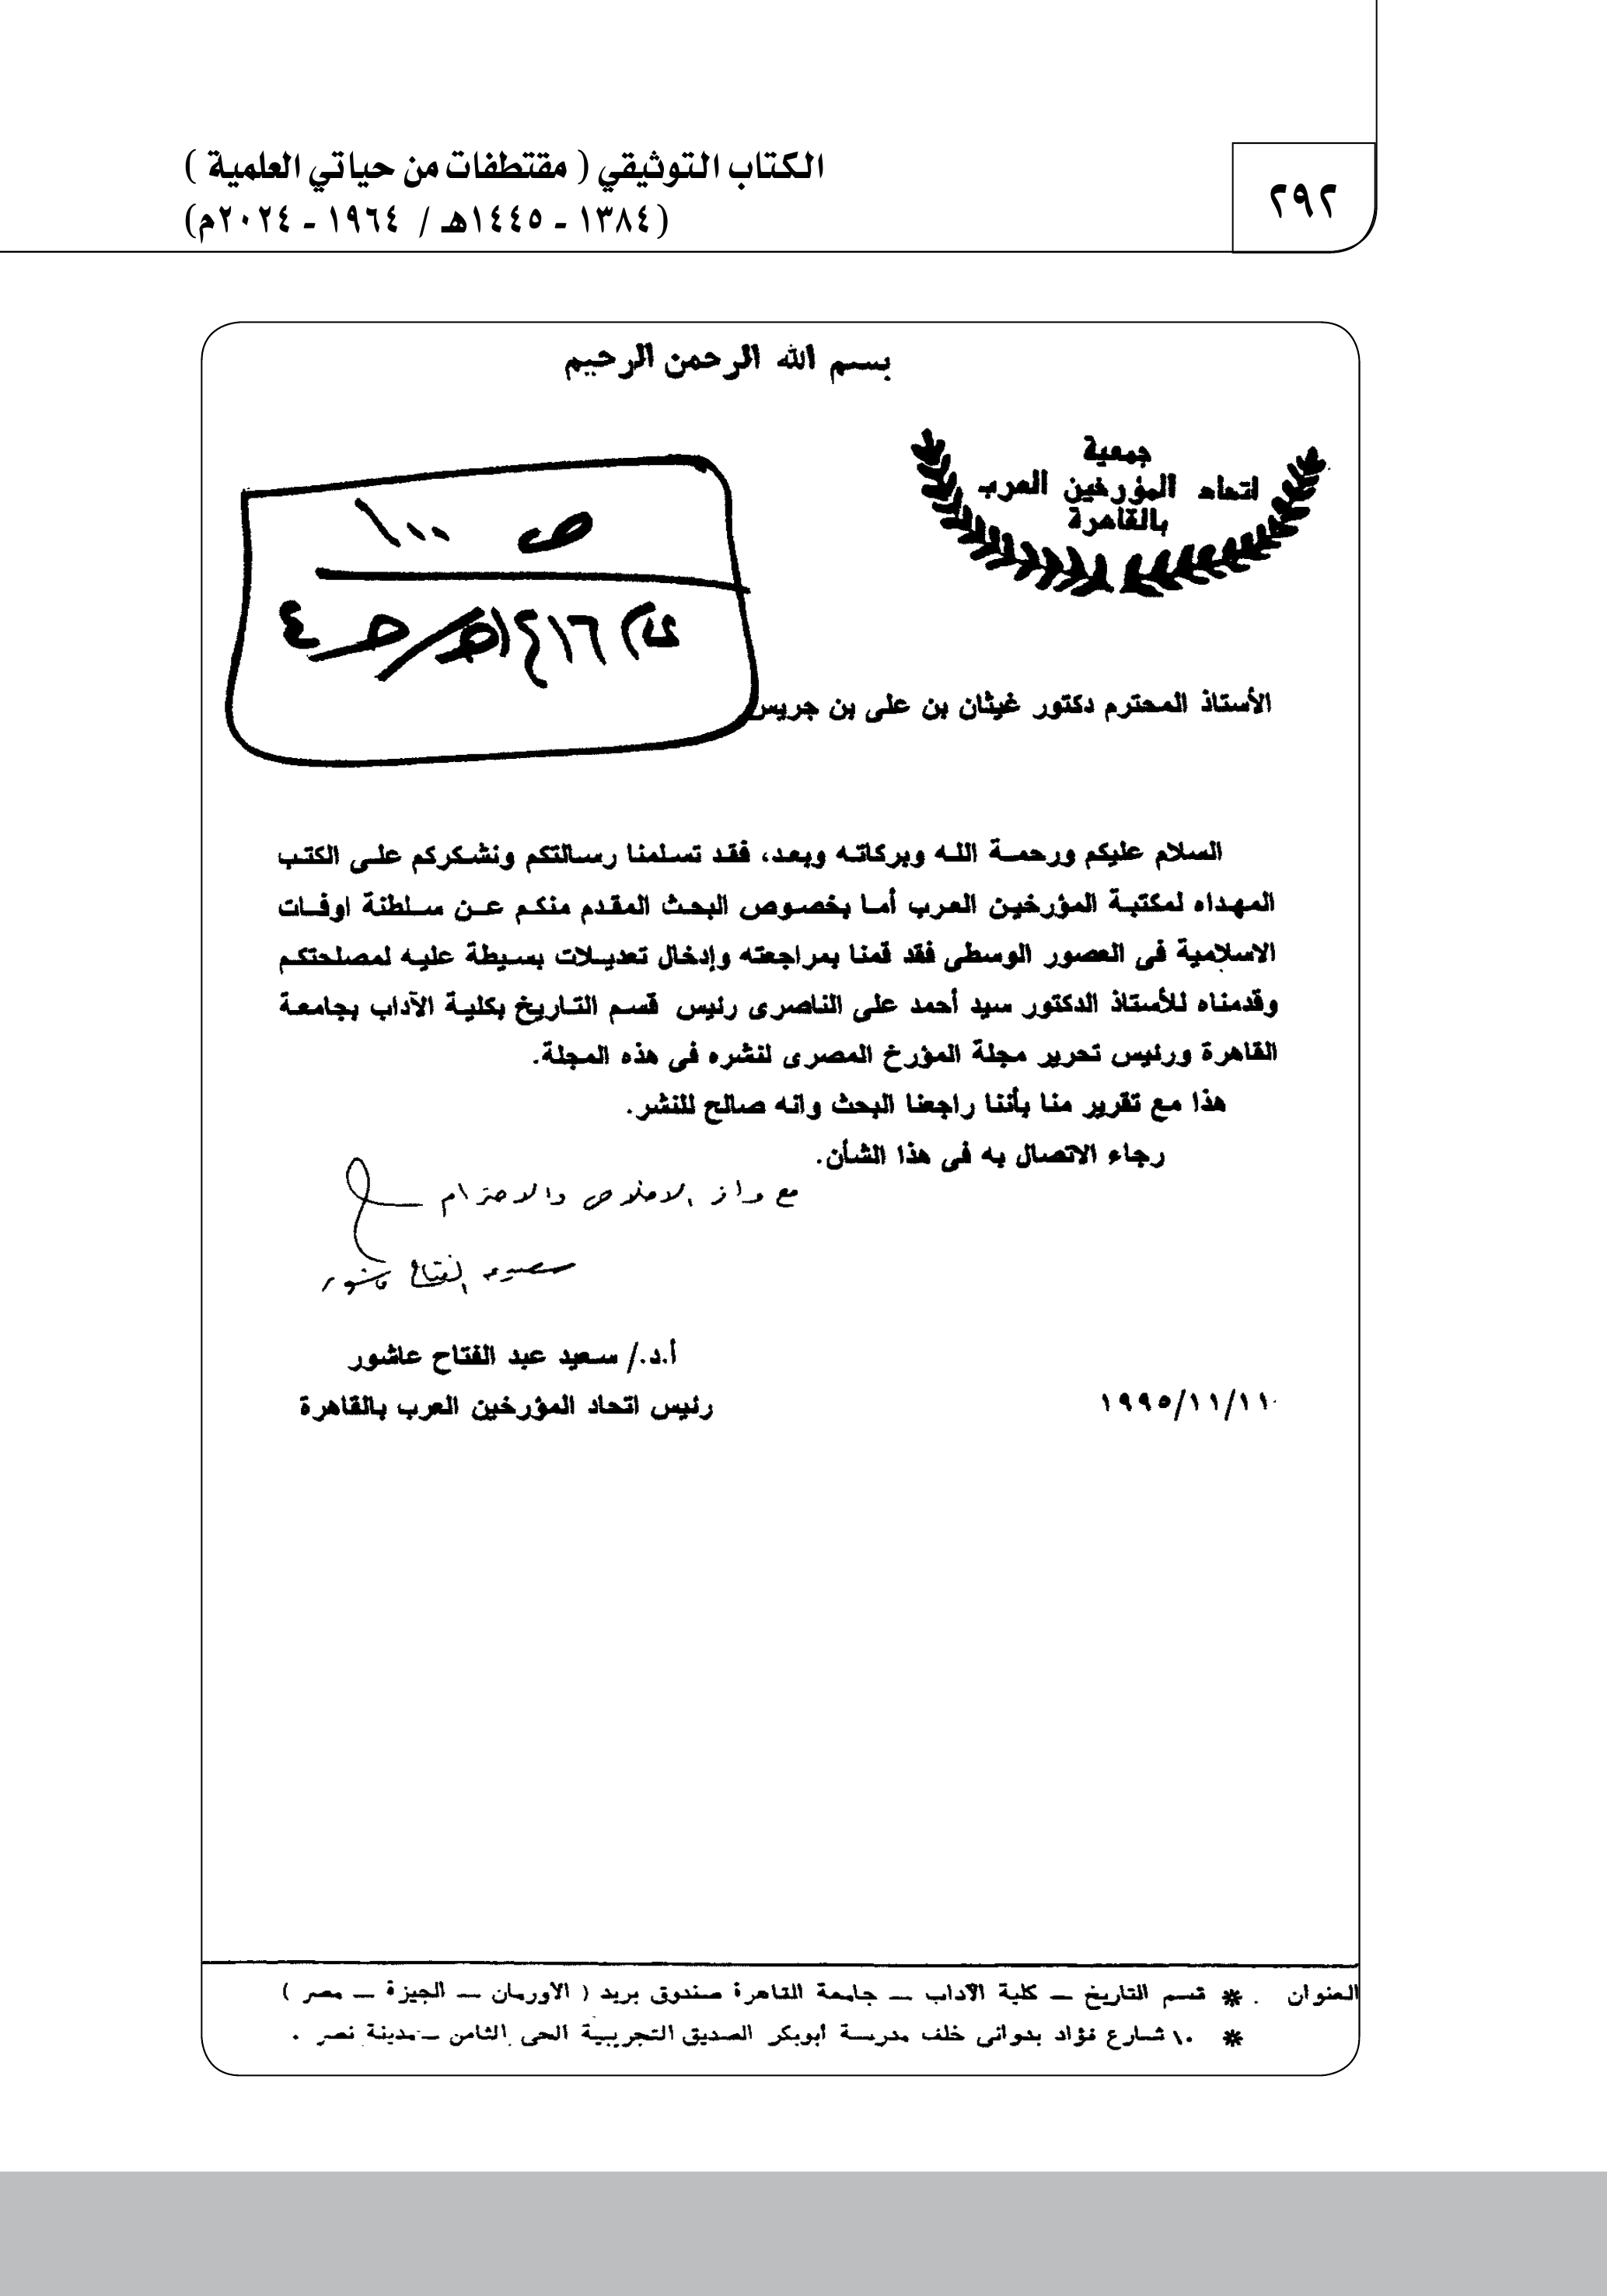 الكتاب التوثيقي ( مقتطفات من حياتي العلمية )
(١٣٨٤ - ١٤٤٥هـ / ١٩٦٤ - ٢٠٢٤م)
٢٩٢
بسم الله الرحمن الرحيم
جمعية
اتحاد المؤرخين العرب
بالقاهرة
ص ١٠٠
الأستاذ المحترم دكتور غيثان بن على بن جريس
السلام عليكم ورحمة الله وبركاته وبعد، فقد تسلمنا رسالتكم ونشكركم على الكتب
المهداه لمكتبة المؤرخين العرب أما بخصوص البحث المقدم منكم عن سلطنة اوفات
الاسلامية فى العصور الوسطى فقد قمنا بمراجعته وإدخال تعديلات بسيطة عليه لمصلحتكم
وقدمناه للأستاذ الدكتور سيد أحمد على الناصرى رئيس قسم التاريخ بكلية الآداب بجامعة
القاهرة ورئيس تحرير مجلة المؤرخ المصرى لنشره فى هذه المجلة.
هذا مع تقرير منا بأننا راجعنا البحث وانه صالح للنشر.
رجاء الاتصال به فى هذا الشأن.
مع وافر الاخلاص والاحترام
سعيد عبد الفتاح عاشور
أ.د./ سعيد عبد الفتاح عاشور
رئيس اتحاد المؤرخين العرب بالقاهرة
١٩٩٥/١١/١١
العنوان . * قسم التاريخ — كلية الآداب — جامعة القاهرة صندوق بريد ( الأورمان — الجيزة — مصر )
* ١٠ شارع فؤاد بدوانى خلف مدرسة أبوبكر الصديق التجريبية الحى الثامن — مدينة نصر .